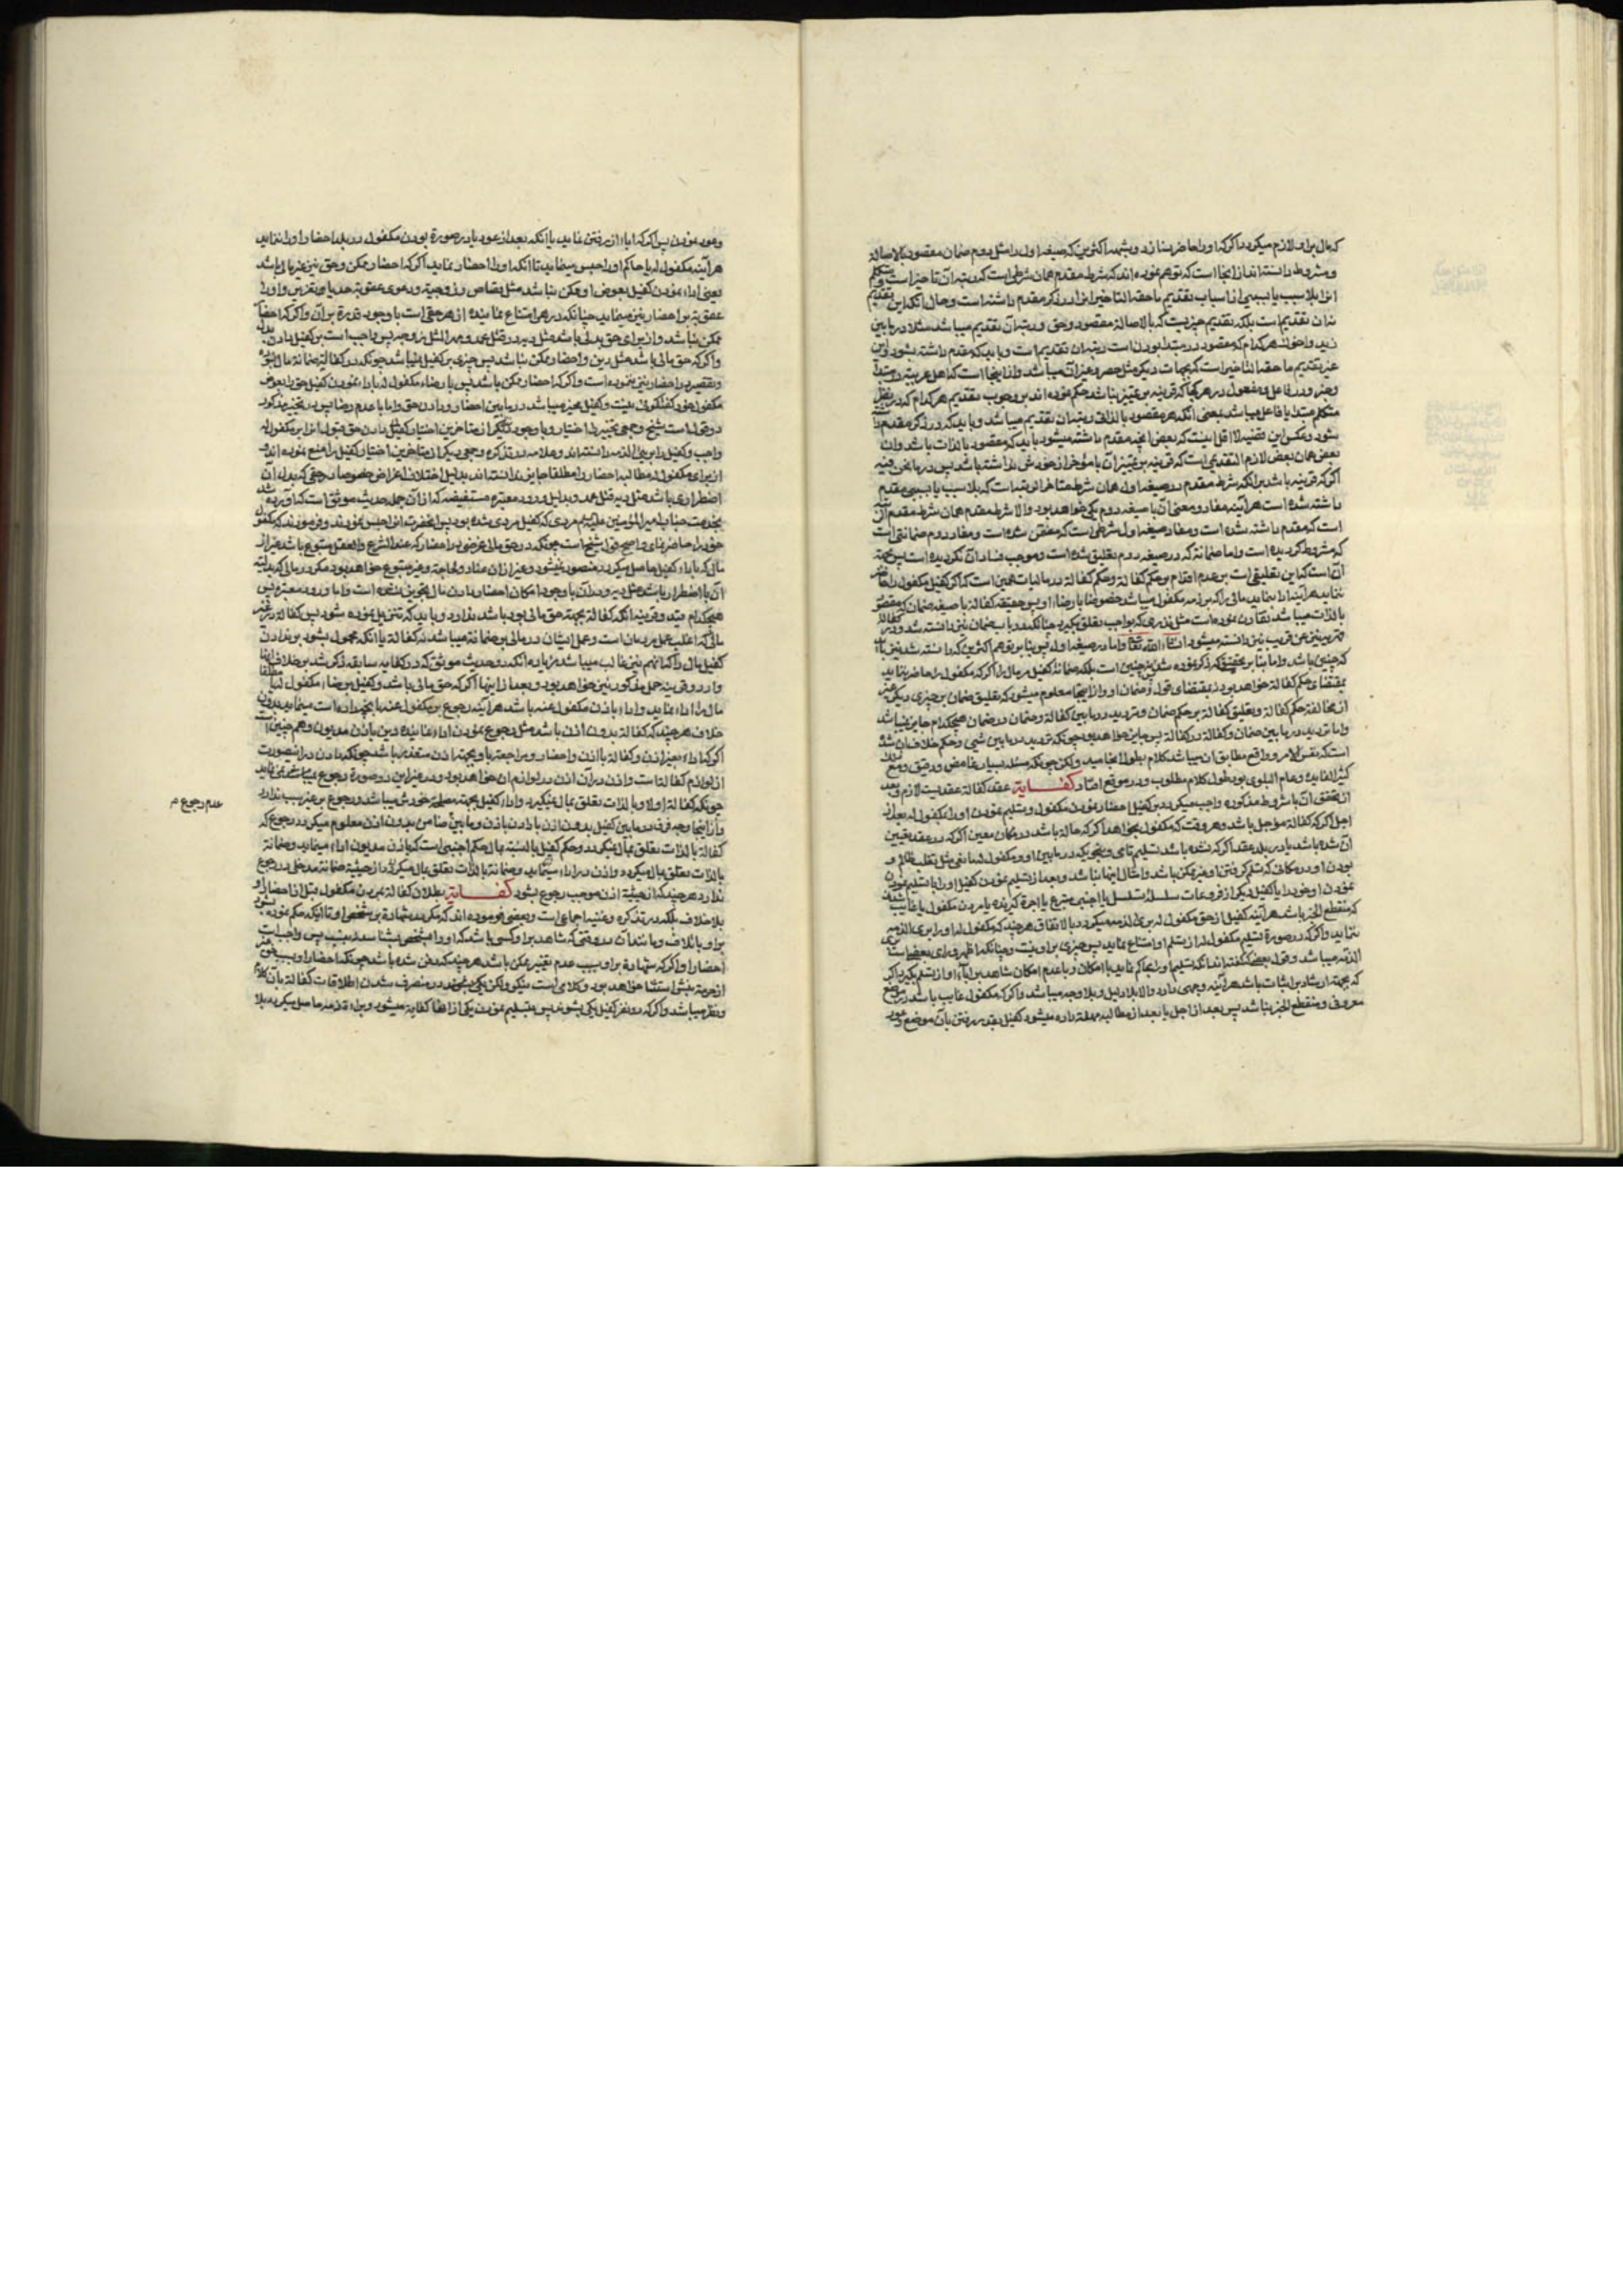 که مال براو لازم میگردد اگر که او را حاضر نسازد و بشهد اکثرین که صیغه اول را مثل دوم ضمان مقصود بالاصالة
و مشروط دانسته‌اند از اینجا است که توهم نموده‌اند که شرط مقدم همان شرطی است که رتبه آن تاخیر است
انرا بلا سبب یا بسببی از اسباب تقدیم ما حقه التاخیر انرا در ذکر مقدم داشته است و حال انکه این تقدیم
نه ان تقدیم است بلکه تقدیم چیزیست که بالاصالة مقصود و حق و رتبه آن تقدیم میباشد مثلا در مابین
زید و اخوك هر کدام که مقصود در مبتدا بودن است رتبه ان تقدیم است و باید که مقدم داشته بشود و این
غیر تقدیم ما حقه التاخیر است که بجهات دیگر مثل حصر و غیر آن میباشد و از اینجا است که اهل عربیة در مبتدا
و خبر و در فاعل و مفعول در هر کجا که قرینه بر تمییز نباشد حکم نموده‌اند بر وجوب تقدیم هر کدام که در نظر
متکلم مبتدا یا فاعل میباشد بمعنی انکه هر مقصود بالذاتی رتبه ان تقدیم میباشد و باید که در ذکر مقدم داشته
بشود و عکس این قضیه لا اقل اینست که بعض انچه مقدم داشته میشود باید که مقصود بالذات باشد و ان
بعض همان بعض لازم التقدیمی است که قرینه بر تمییز آن با مؤخر از خودش نداشته باشد پس در مانحن فیه
اگر که قرینه باشد بر انکه شرط مقدم در صیغه اول همان شرط متاخر الرتبه است که بلا سبب یا بسببی مقدم
داشته شده است هر آینه مفاد و معنی آن با صیغه دوم یکی خواهد بود و الا شرط مقدم همان شرط مقدم الرتبه
است که مقدم داشته شده است و مفاد صیغه اول شرطی است که معقب شده است و مفاد دوم ضمانتی است
که مشروط گردیده است و اما ضمانة که در صیغه دوم تعلیق شده است و موجب فساد آن نگردیده است پس بجهة
آن است که این تعلیقی است بر عدم اقدام بر حکم کفالة و حکم کفالة در مالیات همین است که اگر کفیل مکفول را حاضر
ننماید هر آینه ادا بنماید مالی را که بر ذمه مکفول میباشد خصوصا با رضاء او پس حقیقه کفالة با صیغه ضمان که مقصود
بالذات میباشد
که چنین باشد و اما بنابر تحقیقی که ذکر نموده شد پس نه چنین است بلکه ضمانة کفیل مر مال را اگر که مکفول را حاضر ننماید
بمقتضای حکم کفالة خواهد بود نه بمقتضای قول و ضمان او و از اینجا معلوم میشود که تعلیق ضمان بر چیزی دیگر غیر
از مخالفة حکم کفالة و تعلیق کفالة بر حکم ضمان و تردید در مابین کفالة و ضمان در ضمان هیچکدام جایز نمیباشد
و اما تردید در مابین ضمان و کفالة در کفالة پس جایز خواهد بود چونکه تردید در مابین شیئ و حکم خلاف ان شئ
است که نفس الامر و واقع مطابق ان میباشد کلام بطول انجامید ولکن چونکه مسئله بسیار غامض و دقیق و مع ذلك
کثیر الفایدة و عام البلوی بود طول کلام مطلوب و در موقع افتاد کفــایة عقد کفالة عقدیست لازم و بعد
از تحقق آن با شروط مذکوره واجب میگردد بر کفیل احضار نمودن مکفول و تسلیم نمودن او را بمکفول له بعد از
اجل اگر که کفالة مؤجل باشد و هر وقت که مکفول له بخواهد اگر که حالة باشد در مکان معین اگر که در عقد تعیین
آن شده باشد یا در بلد عقد اگر که نشده باشد تسلیم تامی و بنحوی که در مابین او و مکفول له مانعی مثل تغلب ظالم و
بودن او در مکانی که تسلم گرفتن او غیر ممکن باشد و امثال اینها نباشد و بعد از تسلیم نمودن کفیل او را یا تسلیم نمودن
نمودن او خود را یا کفیل دیگر از فروعات سلسله تسلسل یا اجنبی متبرع یا اجرة گیرنده یا مردن مکفول یا غایب شدن
که منقطع الخبر باشد هر آینه کفیل از حق مکفول له بریء الذمه میگردد بالاتفاق هر چند که مکفول له او را بریء الذمه
ننماید و اگر که در صورة تسلیم مکفول له از تسلم او امتناع نماید پس چیزی بر او نیست و چنانکه اظهر
الذمه میباشد و قول بعضی که گفته‌اند انکه تسلیم او را بحاکم نماید با امکان و با عدم امکان شاهد بر اباء او از تسلم بگیرد اگر
که بجهة ارشاد بر اثبات باشد هر آینه وجهی دارد و الا بلا دلیل و بلا وجه میباشد و اگر که مکفول غایب باشد در موضع
معروفی و منقطع الخبر نباشد پس بعد از اجل یا بعد از مطالبه مهلة داده میشود کفیل بقدر رفتن بآن موضع
و عود نمودن پس اگر که اباء از رفتن نماید یا انکه بعد از عود یا در صورة بودن مکفول در بلد احضار او را ننماید
هر آینه مکفول له یا حاکم او را حبس مینماید تا انکه او را احضار نماید اگر که احضار ممکن و حق نیز غیر مالی باشد
یعنی اداء نمودن کفیل بعوض او ممکن نباشد مثل قصاص و زوجیة و دعوی عقوبة حد یا تعزیر و او را
عقوبة بر احضار نیز مینماید چنانکه در هر امتناع نماینده از هر حقی است با وجود قدرة بر آن و اگر که احضار
ممکن نباشد و از برای حق بدلی باشد مثل دیه در قتل عمد و مهر المثل زوجه پس واجب است بر کفیل دادن بدل
و اگر که حق مالی باشد مثل دین و احضار ممکن نباشد پس چیزی بر کفیل نمیباشد چونکه در کفالة ضمانة مال نبوده
و تقصیر در احضار نیز ننموده است و اگر که احضار ممکن باشد پس با رضاء مکفول له باداء نمودن کفیل حق را بعوض
مکفول خود گفتگوئی نیست و کفیل مخیر میباشد در مابین احضار و دادن حق و اما با عدم رضا پس در تخییر مذکور
دو قول است شیخ و جمعی
واجب و کفیل را بریء الذمه دانسته‌اند و علامه در تذکره و جمعی دیگر از متاخرین اختیار کفیل را منع نموده‌اند و
از برای مکفول له مطالبه احضار را مطلقا جایز دانسته‌اند بدلیل اختلاف اغراض خصوصا در حقی که بدل آن
اضطراری باشد مثل دیه قتل عمد و بدلیل ورود معتبره مستفیضه که از آن جمله حدیث موثق است که آورده شد
بخدمت جناب امیر المؤمنین علیه السلام مردی که کفیل مردی شده بود پس انحضرت انرا حبس نمودند و فرمودند که مکفول
خود را حاضر نمای و اصح قول شیخ است چونکه در حق مالی غرضی در احضار که عند الشرع و العقل متبوع باشد غیر از
مالی که باداء کفیل حاصل میگردد متصور نمیشود و غیر از ان عناد و لجاجة و غیر متبوع خواهد بود مگر در مالی که بدلیة
آن باضطرار باشد مثل دیه
هیچکدام مقید و قرینه انکه کفالة بجهة حق مالی بود باشد ندارد و باید که تنزیل نموده شود پس کفالة در غیر
مالی که اغلب عمل مردمان است و عمل ایشان در مالی بر ضمانة میباشد نه کفالة یا انکه محمول بشود بر ندادن
کفیل مال را که انهم نیز غالب میباشد
وارد و قرینه حمل مذکور نیز خواهد بود و بعد از اینها اگر که حق مالی باشد و کفیل برضاء مکفول له یا مطلقا
مال را اداء نماید و اداء باذن مکفول عنه باشد هر آینه رجوع بر مکفول عنه بانچه داده است مینماید بدون
خلاف هر چند که کفالة بدون اذن باشد مثل رجوع نمودن اداء نماینده دین باذن مدیون و هم چنین است
اگر که اداء بغیر اذن و کفالة باذن و احضار و مراجعة باو بجهة اذن متعذر باشد چونکه دادن در اینصورت
از لوازم کفالة است و اذن در آن اذن در لوازم ان خواهد بود و در غیر این دو صورة رجوع نمینماید
چونکه کفالة اولا و بالذات تعلق بمال نمیگیرد و اداء کفیل بجهة مصلحة خودش میباشد و رجوع بر غیر سبب ندارد
و از اینجا وجه فرق در مابین کفیل بدون اذن با دادن باذن و مابین ضامن بدون اذن معلوم میگردد در رجوع که
کفالة بالذات تعلق بمال نمیگیرد و حکم کفیل بالنسبة بمال حکم اجنبی است که باذن مدیون اداء مینماید و ضمانة
بالذات تعلق بمال میگیرد و اذن در اداء مینماید و ضمانة بالذات تعلق بمال میگیرد از حیثیة ضمانة مدخلی در رجوع
ندارد هر چند که از حیثیة اذن موجب رجوع بشود کفــایة بطلان کفالة بمردن مکفول قبل از احضار او
بلا خلاف بلکه در تذکره و غنیه اجماعی است و بعضی فرموده‌اند که مگر در شهادة بر شخص او تا انکه حکم نموده شود
براو باتلاف و مانند آن در وقتی که شاهد براو کسی باشد که او را بشخص بشناسد نه بنسب پس واجب است
احضار او اگر که شهادة براو بسبب عدم تغییر ممکن باشد هر چند که دفن شده باشد چونکه احضار او بسبب غرض
از حرمة نبش استثنا خواهد بود و کلامی است نیکو ولکن
و نفر میباشد و اگر که دو نفر کفیل یکی بشوند پس بتسلیم نمودن یکی از انها کفایة میشود و براءة ذمه حاصل میگردد بلا
عدم رجوع م